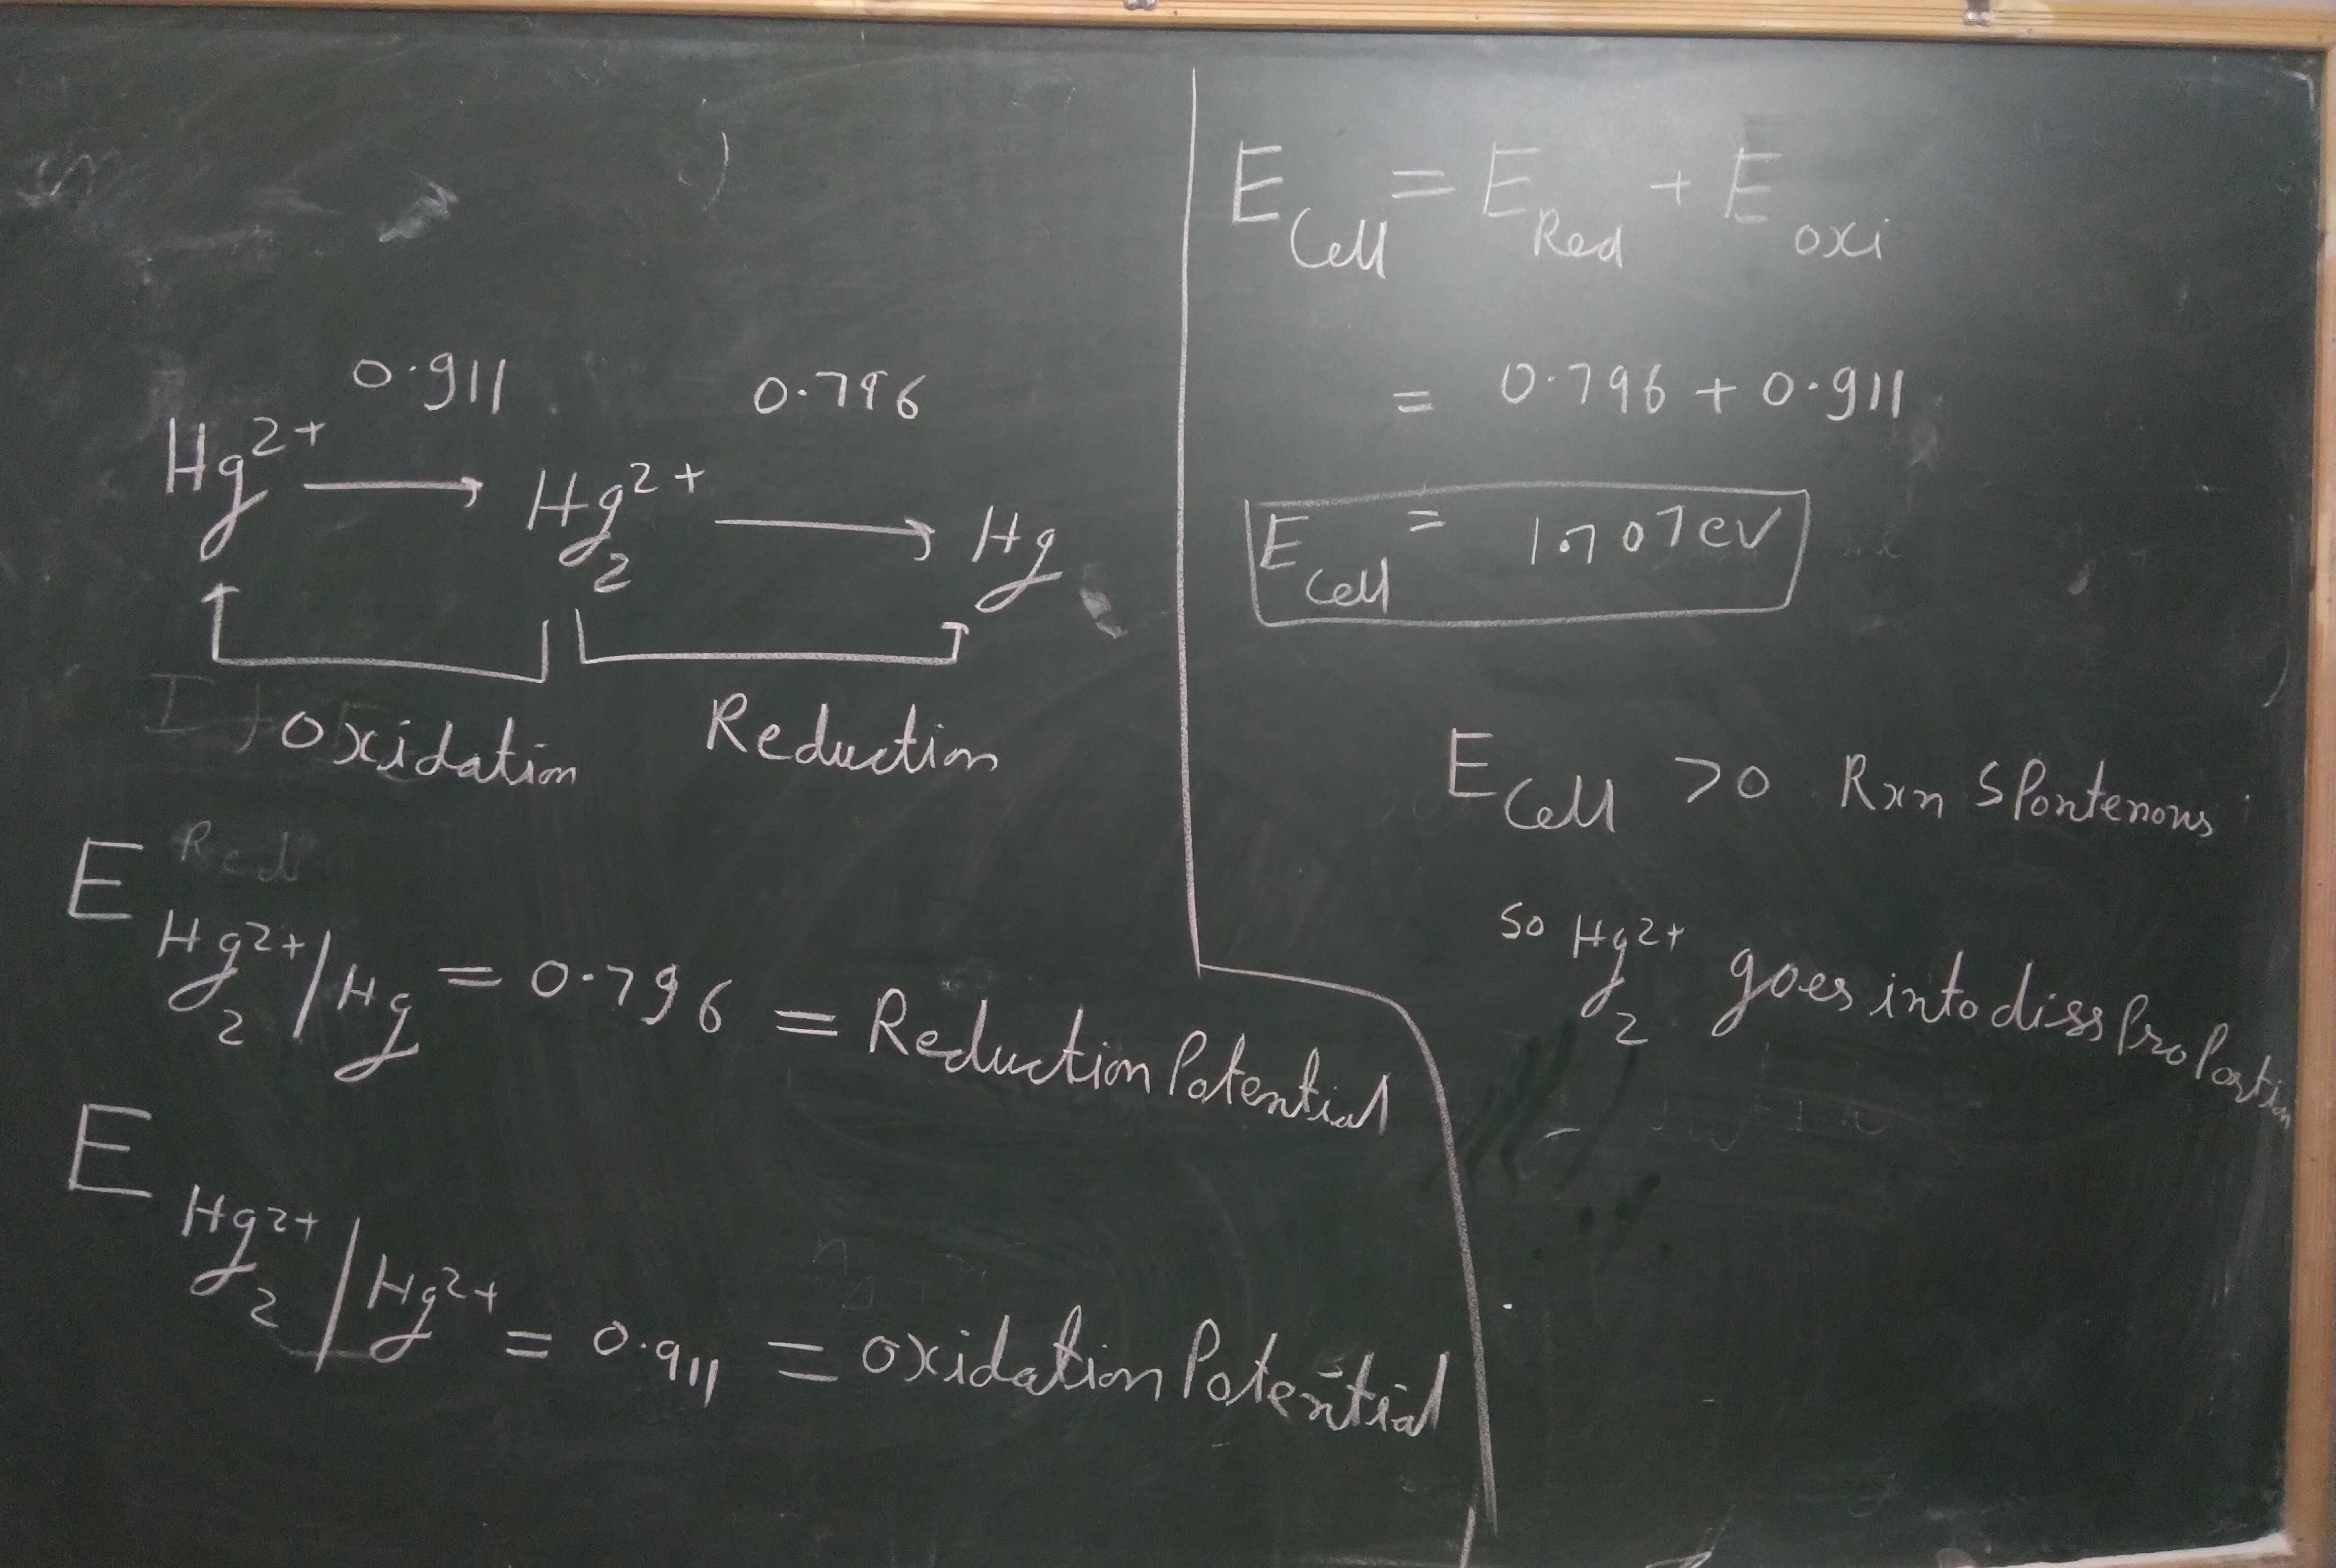 0.911 0.796
Hg²⁺ → Hg₂²⁺ → Hg
Oxidation Reduction
E Red
Hg₂²⁺/Hg = 0.796 = Reduction Potential
E Hg₂²⁺/Hg²⁺ = 0.911 = Oxidation Potential
E Cell = E Red + E oxi
= 0.796 + 0.911
E Cell = 1.707 eV
E Cell >0 Rxn Spontenous
So Hg₂²⁺ goes into dissproportin